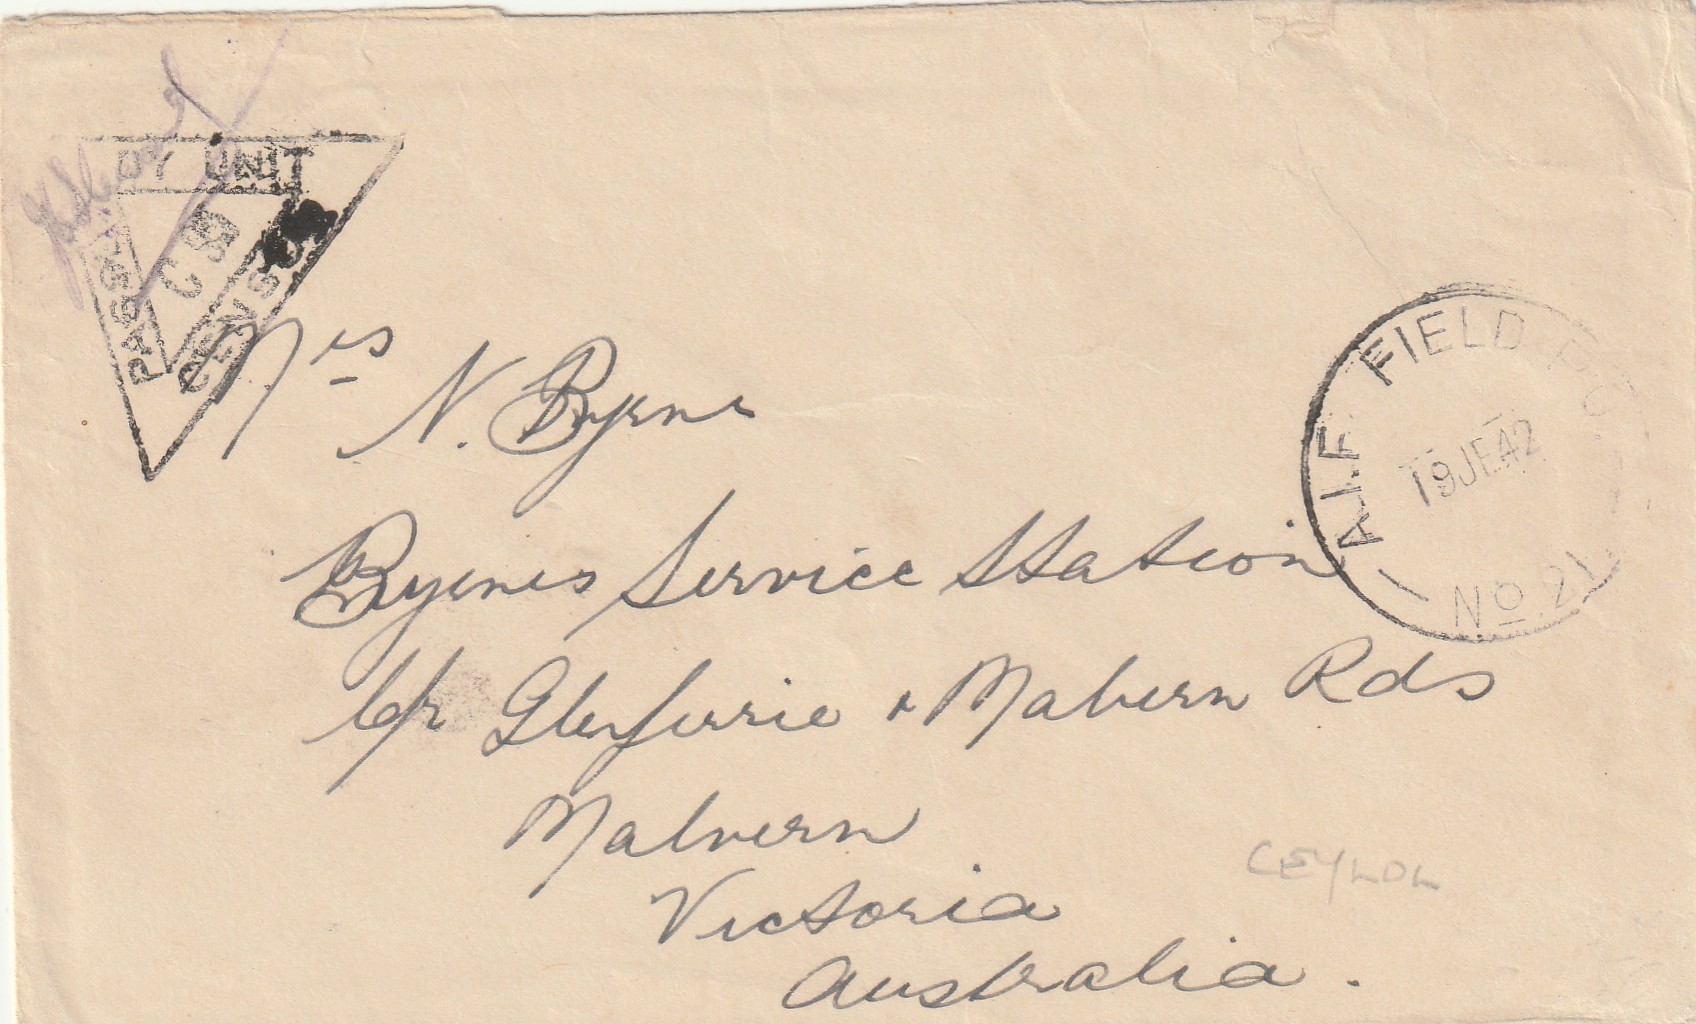 PASSED BY UNIT CENSOR
C
A.I.F. FIELD P.O.
19JE42
No 21
Mrs N. Byrne
Byrnes Service Station
c/r Glenferrie & Malvern Rds
Malvern
Victoria
Australia.
CEYLON